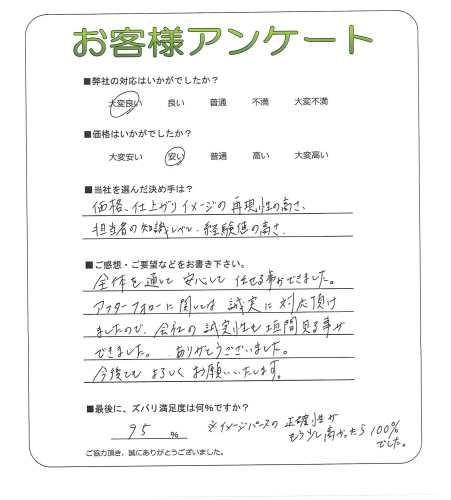 お客様アンケート
■弊社の対応はいかがでしたか?
大変良い 良い 普通 不満 大変不満
■価格はいかがでしたか?
大変安い 安い 普通 高い 大変高い
■当社を選んだ決め手は?
価格、仕上がりイメージの再現性の高さ、
担当者の知識レベル・経験値の高さ.
■ご感想・ご要望などをお書き下さい。
全体を通して安心して任せる事ができました。
アフターフォローに関しては誠実に対応頂け
ましたので、会社の誠実性も垣間見る事が
できました。ありがとうございました。
今後ともよろしくお願いいたします。
■最後に、ズバリ満足度は何%ですか?
95 %
※イメージパースの正確性が
もう少し高かったら100%
でした。
ご協力頂き、誠にありがとうございました。